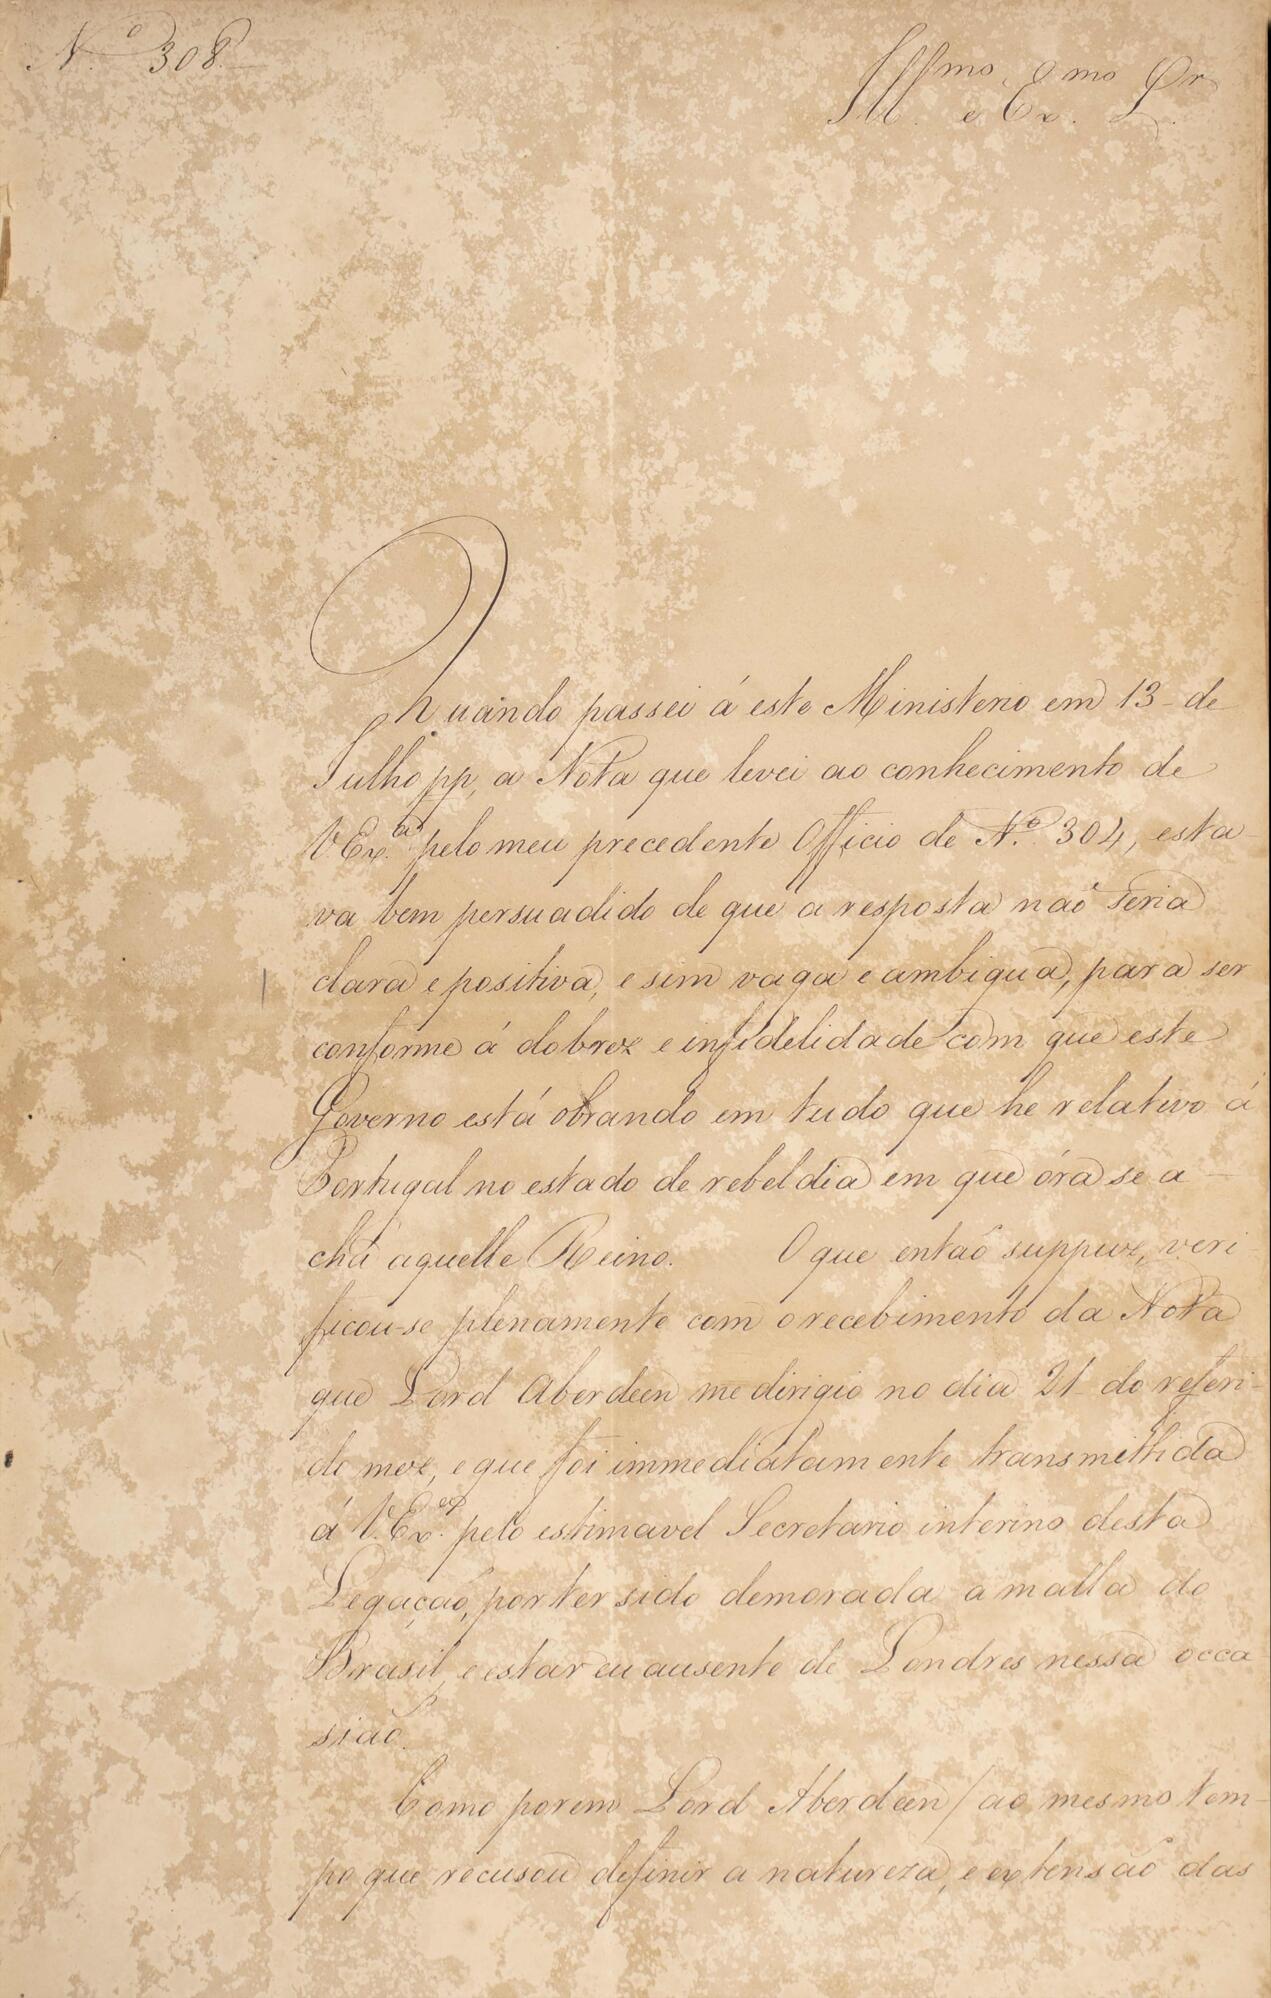 Nº 308.
Illmo. e Exmo. Sr.
Quando passei á este Ministerio em 13 de
Julho pp, a Nota que levei ao conhecimento de
V. Exa. pelo meu precedente Officio de Nº 304, esta-
va bem persuadido de que a resposta naõ seria
clara e positiva, e sim vaga e ambigua, para ser
conforme á dobrez e infidelidade com que este
Governo está obrando em tudo que he relativo á
Portugal no estado de rebeldia em que óra se a-
cha aquelle Reino. O que entaõ suppuz, veri-
ficou-se plenamente com o recebimento da Nota
que Lord Aberdeen me dirigio no dia 21 do referi-
do mez, e que foi immediatamente transmittida
á V. Exa. pelo estimavel Secretario interino desta
Legaçaõ, por ter sido demorada a malla do
Brasil, e estar eu ausente de Londres nessa occa-
siaõ.
Como porem Lord Aberdeen / ao mesmo tem-
po que recusou definir a natureza, e extensaõ das